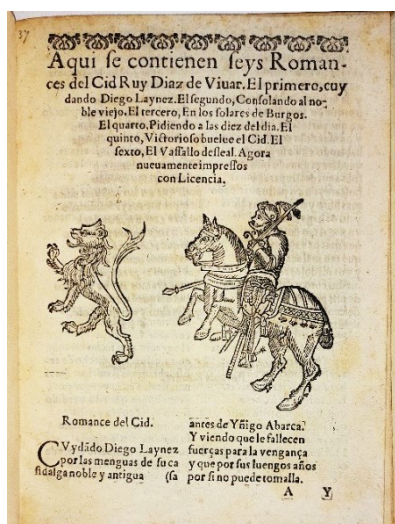 37
Aqui se contienen seys Roman-
ces del Cid Ruy Diaz de Viuar. El primero, cuy
dando Diego Laynez. El segundo, Consolando al no-
ble viejo. El tercero, En los solares de Burgos.
El quarto, Pidiendo a las diez del dia. El
quinto, Victorioso buelue el Cid. El
sexto, El Vassallo desleal. Agora
nueuamente impressos
con Licencia.
Romance del Cid.
CVydãdo Diego Laynez
por las menguas de su ca
sidalga noble y antigua (sa
antes de Yñigo Abarca.
Y viendo que le fallecen
fuerças para la vengança
y que por sus luengos años
por si no puede tomalla.
A Y